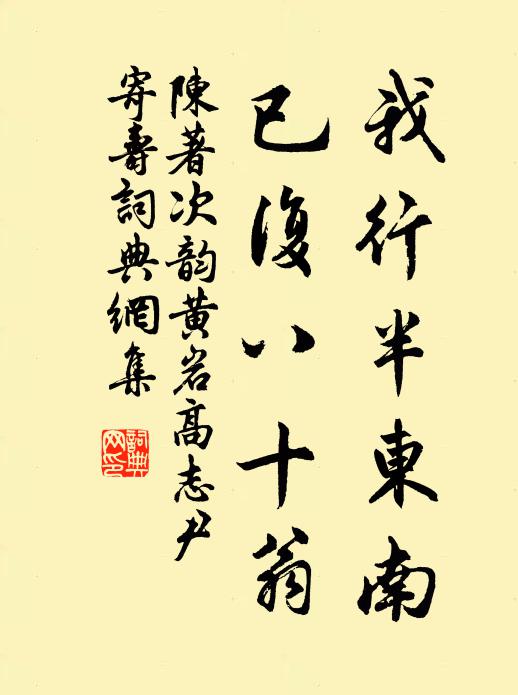 我行半東南
已復八十翁
陳著次韵黄岩高志尹
寄壽詞典網集
詞典网印